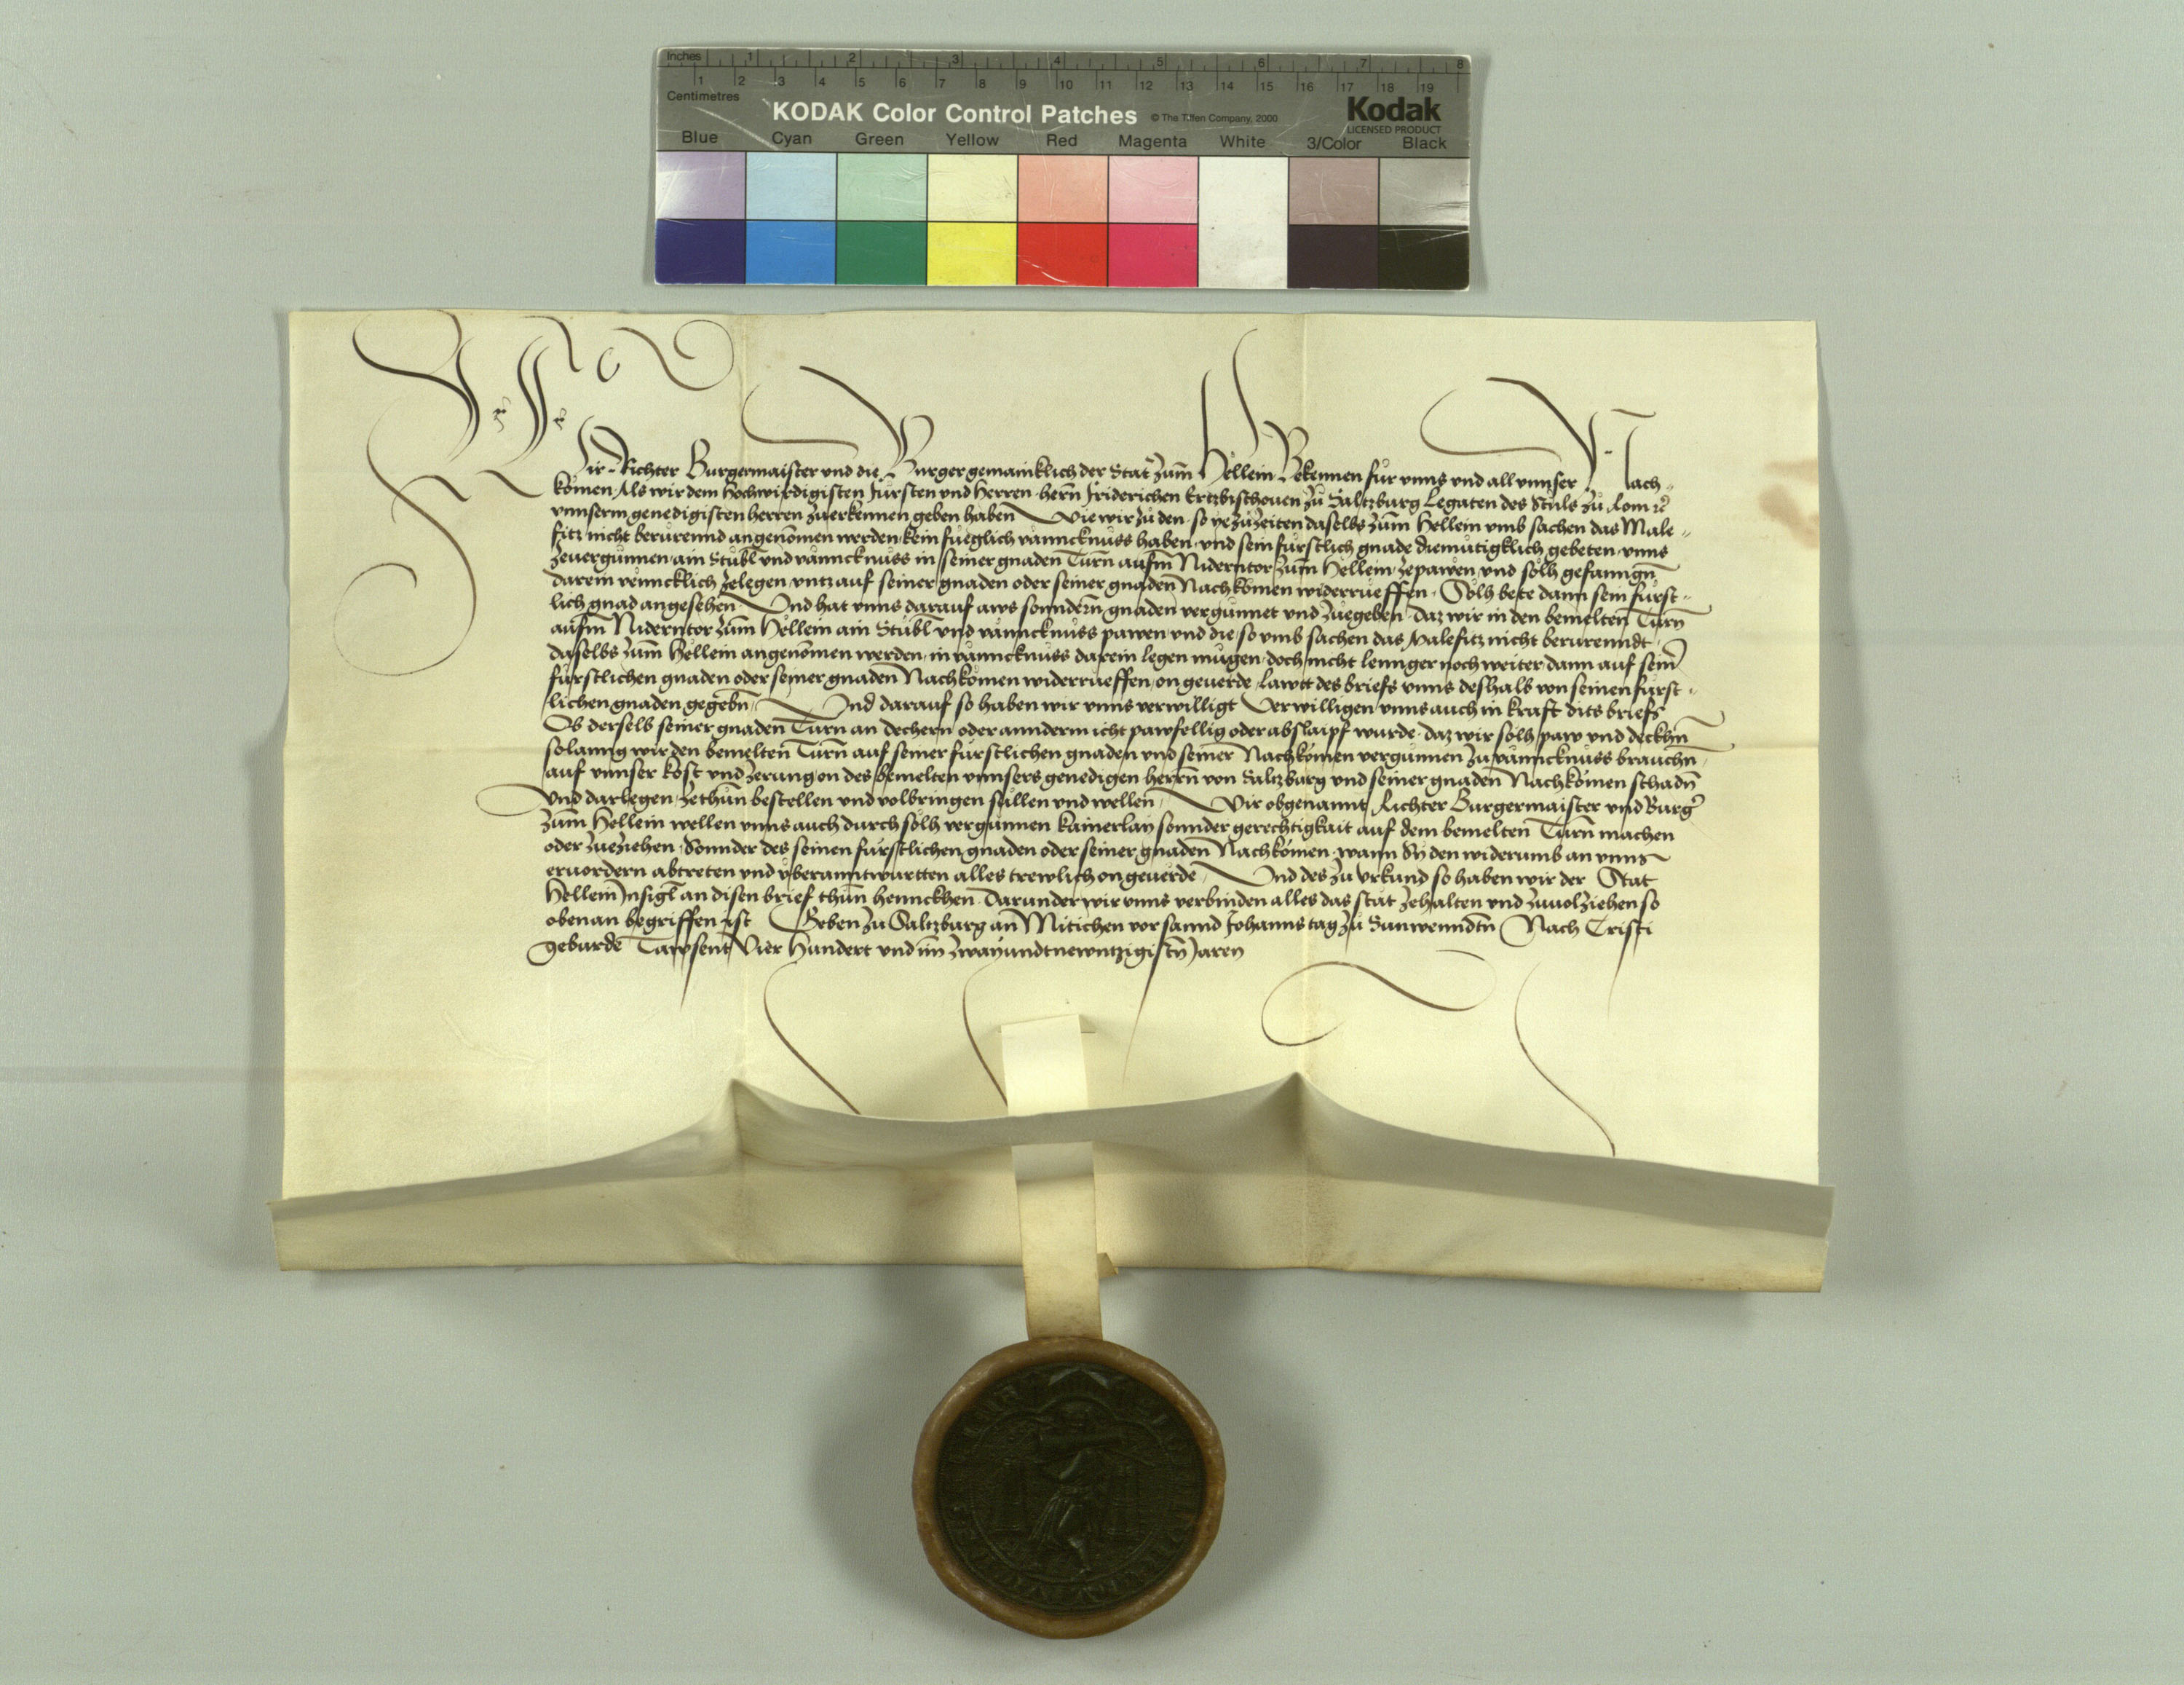 Inches 1 2 3 4 5 6 7 8
1 2 3 4 5 6 7 8 9 10 11 12 13 14 15 16 17 18 19
Centimetres
KODAK Color Control Patches © The Tiffen Company, 2000 Kodak
LICENSED PRODUCT
Blue Cyan Green Yellow Red Magenta White 3/Color Black
Wir Richter Burgermaister und die Burger gemainklich der Stat zum Hellein Bekennen für unns und all unnser Nach-
komen Als wir dem Hochwirdigisten Fürsten und Herren hern Friderichen Ertzbischouen zů Saltzburg Legaten des Stůls zů Rom ꝛc
unnserm genedigisten herren zuerkennen geben haben Wie wir zů den so yezůzeiten daselbs zům Hellein umb sachen das Male-
fitz nicht berůrennd angenomen werden kein fueglich vänncknůss haben und sein fürstlich gnade diemůtigklich gebeten unns
zeuergunnen ain Stůbl und vänncknuss in seiner gnaden Turn aufm Niderntor zům Hellein zepawen und sölh gefanngn̄
darein vennclich zelegen untz auf seiner gnaden oder seiner gnaden Nachkomen widerrueffen Sölh bete dann sein fürst-
lich gnad angesehen Und hat unns darauf aws sonndern gnaden vergunnet und zuegeben daz wir in den bemelten Turn
aufm Niderntor zům Hellein ain Stůbl und vänncknůss pawen und die so umb sachen das Malefitz nicht berurenndt
daselbs zům Hellein angenomen werden in vännckuss darein legen mugen doch nicht lennger noch weiter dann auf seinr
fürstlichen gnaden oder seiner gnaden Nachkomen widerrueffen on geuerde lawtt des briefs unns deshalb von seinen fürst-
lichen gnaden gegebn̄ Und darauf so haben wir unns verwilligt Verwilligen unns auch in kraft dits briefs
Ob derselb seiner gnaden Turn an dechern oder annderm icht pawfellig oder abslaipf wurde daz wir sölh paw und deckhn̄
solanng wir den bemelten Turn auf seiner fürstlichen gnaden und seiner Nachkomen vergunnen zu vännckuss brauchn̄
auf unnser kost und zerung on des bemelten unnsers genedigen herrn von Saltzburg und seiner gnaden Nachkomen schadn̄
und darlegen zethun bestellen und volbringen sullen und wellen Wir obgenannt Richter Burgermaister und Burgꝰ
zům Hellein wellen unns auch durch sölh vergunnen kainerlay sonnder gerechtigkait auf dem bemelten Turn machen
oder zueziehen Sonnder des seinen fürstlichen gnaden oder seiner gnaden Nachkomen wann Sy den widerumb an unns
eruordern abtreten und überanntwurtten alles trewlich on geuerde Und des zu Urkund so haben wir der Stat
Hellein Insigl an disen brief thun henngkhen Darunder wir unns verbinden alles das stät zehalten und zuuolziehen so
oben an begriffen ist Geben zu Saltzburg an Mitichen vor sannd Johanns tag zů Sunwenndtn̄ Nach Cristi
geburde Tawsent Vier Hundert und im zwayundtnewntzigistn̄ Jaren